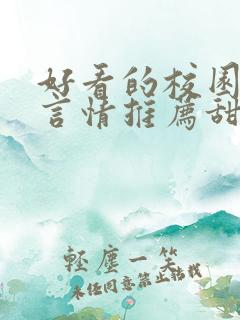 好看的校园
言情推薦甜
輕塵一笑
未经同意禁止转载